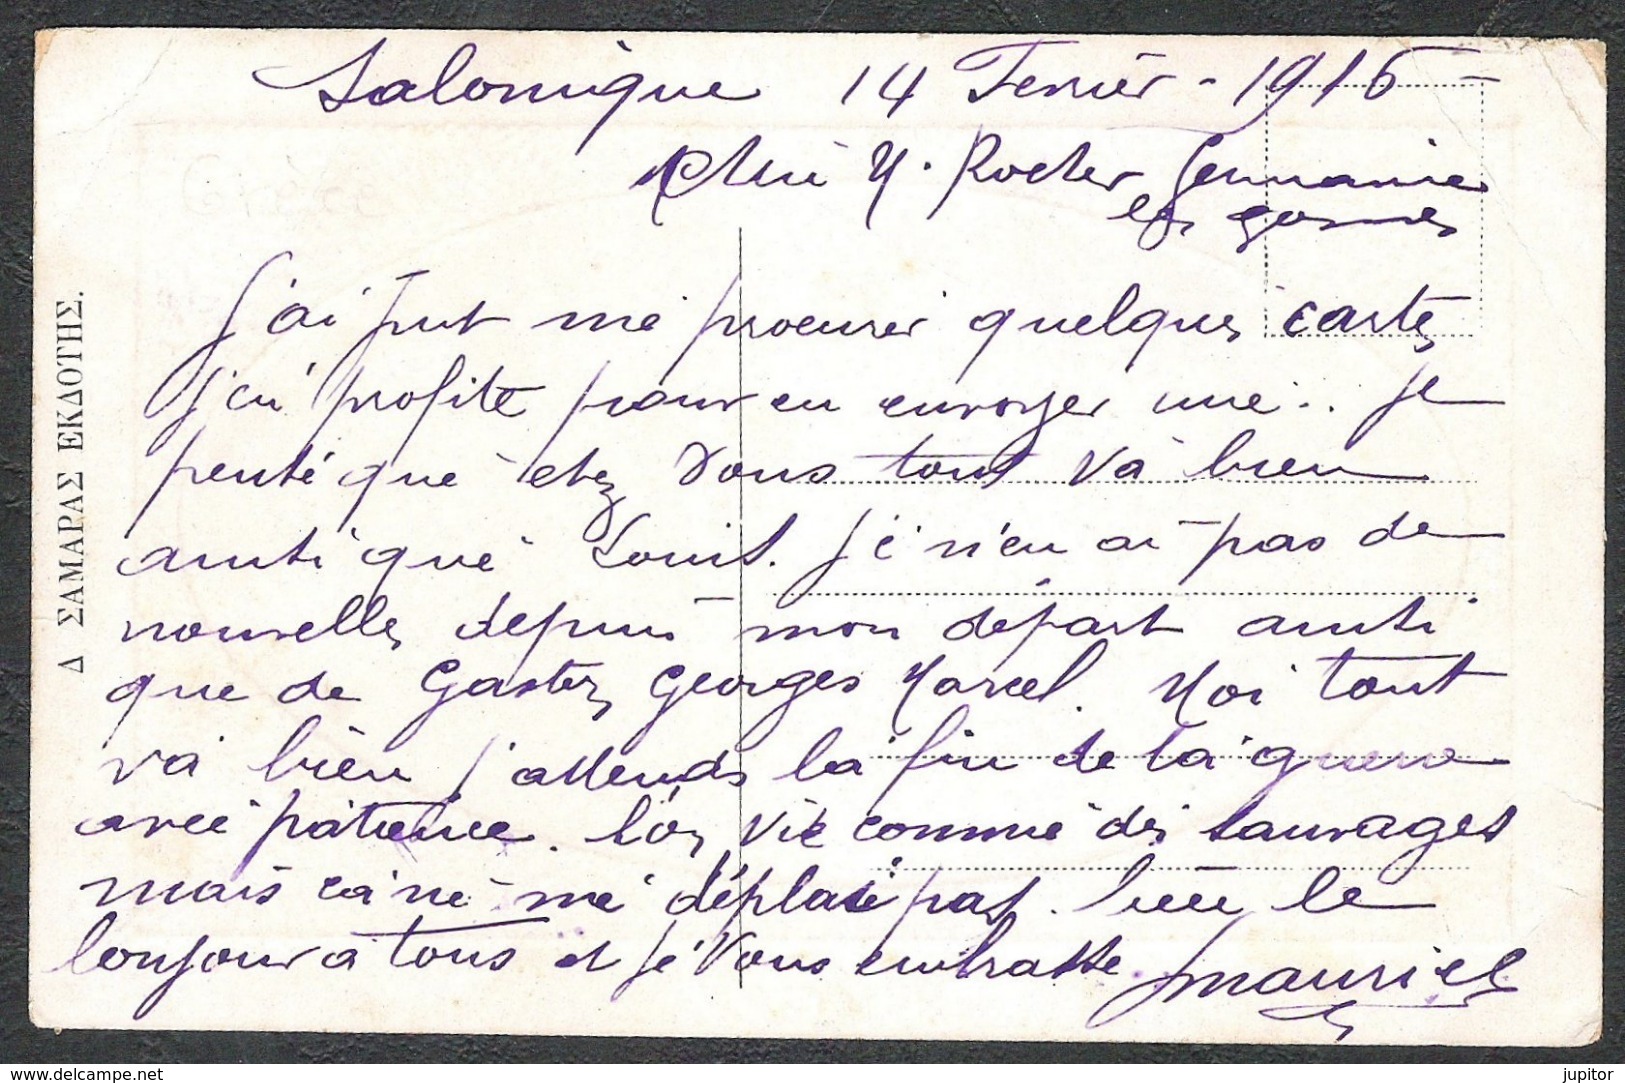 Salonique 14 Fevrier - 1916
Chère M. Rocher Germaine
et gosses
J'ai put me procurer quelques cartes
j'en profite pour en envoyer une.. je
pense que chez vous tout va bien
ainsi que Louis. Je n'en ai pas de
nouvelles depuis mon départ ainsi
que de Gaston Georges Marcel. Moi tout
va bien j'attends la fin de la guerre
avec patience. l'on vie comme des sauvages
mais ca ne me déplaie pas. bien le
bonjour a tous et je vous embrasse. Maurice
Δ ΣΑΜΑΡΑΣ ΕΚΔΟΤΗΣ.
www.delcampe.net
jupitor